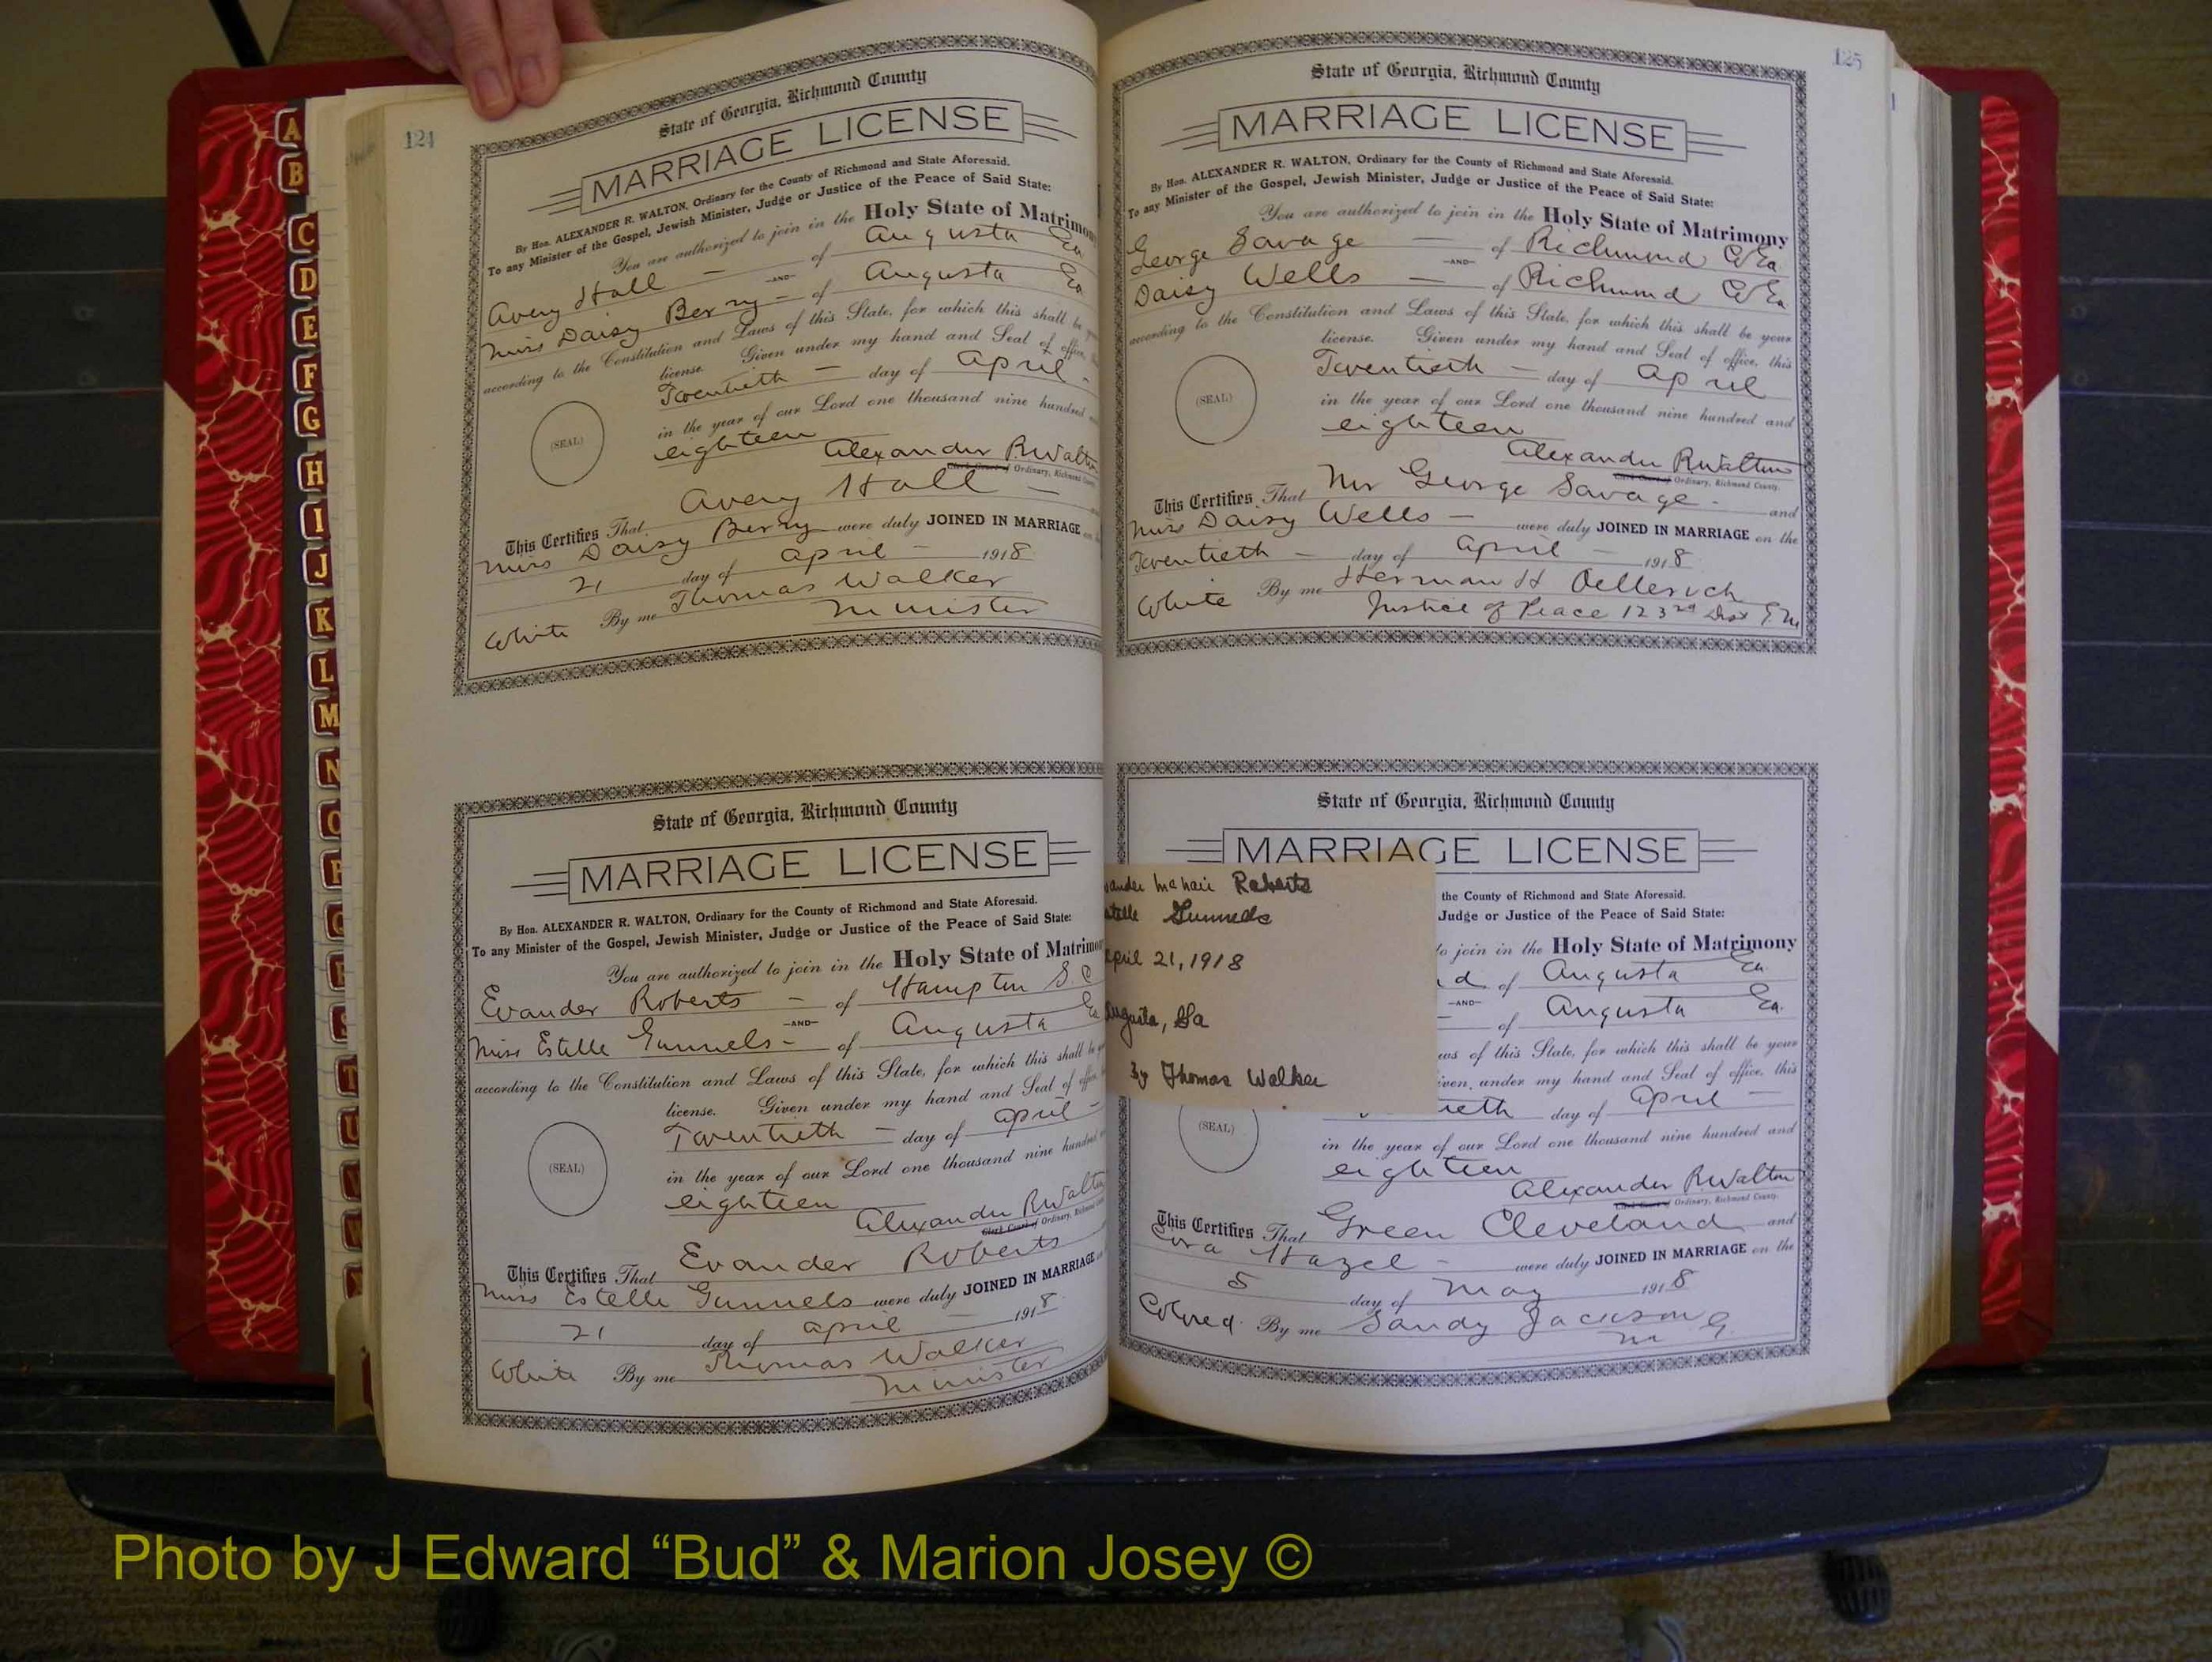 A
B
C
D
E
F
G
H
I
J
K
L
M
N
124
State of Georgia, Richmond County
MARRIAGE LICENSE
By Hon. ALEXANDER R. WALTON, Ordinary for the County of Richmond and State Aforesaid.
To any Minister of the Gospel, Jewish Minister, Judge or Justice of the Peace of Said State:
You are authorized to join in the Holy State of Matrimony
Avery Hall — of Augusta Ga
—AND—
Miss Daisy Berry — of Augusta Ga
according to the Constitution and Laws of this State, for which this shall be
license. Given under my hand and Seal of office,
Twentieth — day of April —
(SEAL)
in the year of our Lord one thousand nine hundred
eighteen
Alexander R Walton
Clerk Court of Ordinary, Richmond
This Certifies That Avery Hall —
Miss Daisy Berry were duly JOINED IN MARRIAGE
21 day of April — 1918
White By me Thomas Walker
Minister
State of Georgia, Richmond County
MARRIAGE LICENSE
By Hon. ALEXANDER R. WALTON, Ordinary for the County of Richmond and State Aforesaid.
To any Minister of the Gospel, Jewish Minister, Judge or Justice of the Peace of Said State:
You are authorized to join in the Holy State of Matrimo
Evander Roberts — of Hampton S C
—AND—
Miss Estelle Gunnels — of Augusta Ga
according to the Constitution and Laws of this State, for which this shall be
license. Given under my hand and Seal of
Twentieth — day of April —
(SEAL)
in the year of our Lord one thousand nine hundred
eighteen
Alexander R Walton
Clerk Court of Ordinary, Richmond
This Certifies That Evander Roberts
Miss Estelle Gunnels were duly JOINED IN MARRIAGE
21 day of April — 1918
White By me Thomas Walker
Minister
125
State of Georgia, Richmond County
MARRIAGE LICENSE
By Hon. ALEXANDER R. WALTON, Ordinary for the County of Richmond and State Aforesaid.
To any Minister of the Gospel, Jewish Minister, Judge or Justice of the Peace of Said State:
You are authorized to join in the Holy State of Matrimony
George Savage — of Richmond Co Ga
—AND—
Daisy Wells — of Richmond Co Ga
according to the Constitution and Laws of this State, for which this shall be your
license. Given under my hand and Seal of office, this
Twentieth — day of April
(SEAL)
in the year of our Lord one thousand nine hundred and
eighteen
Alexander R Walton
Clerk Court of Ordinary, Richmond County.
This Certifies That Mr George Savage — and
Miss Daisy Wells — were duly JOINED IN MARRIAGE on the
Twentieth — day of April — 1918
White By me Herman H Oellerich
Justice of Peace 123rd Dist G. M
State of Georgia, Richmond County
MARRIAGE LICENSE
ander McNair Roberts
stelle Gunnels
April 21, 1918
Augusta, Ga
By Thomas Walker
the County of Richmond and State Aforesaid.
Judge or Justice of the Peace of Said State:
to join in the Holy State of Matrimony
d of Augusta Ga.
—AND—
of Augusta Ga.
ws of this State, for which this shall be your
iven under my hand and Seal of office, this
ieth day of April —
(SEAL)
in the year of our Lord one thousand nine hundred and
eighteen
Alexander R Walton
Clerk Court of Ordinary, Richmond County.
This Certifies That Green Cleveland and
Cora Hazel — were duly JOINED IN MARRIAGE on the
5 day of May 1918
Colored. By me Sandy Jackson
M G.
Photo by J Edward “Bud” & Marion Josey ©